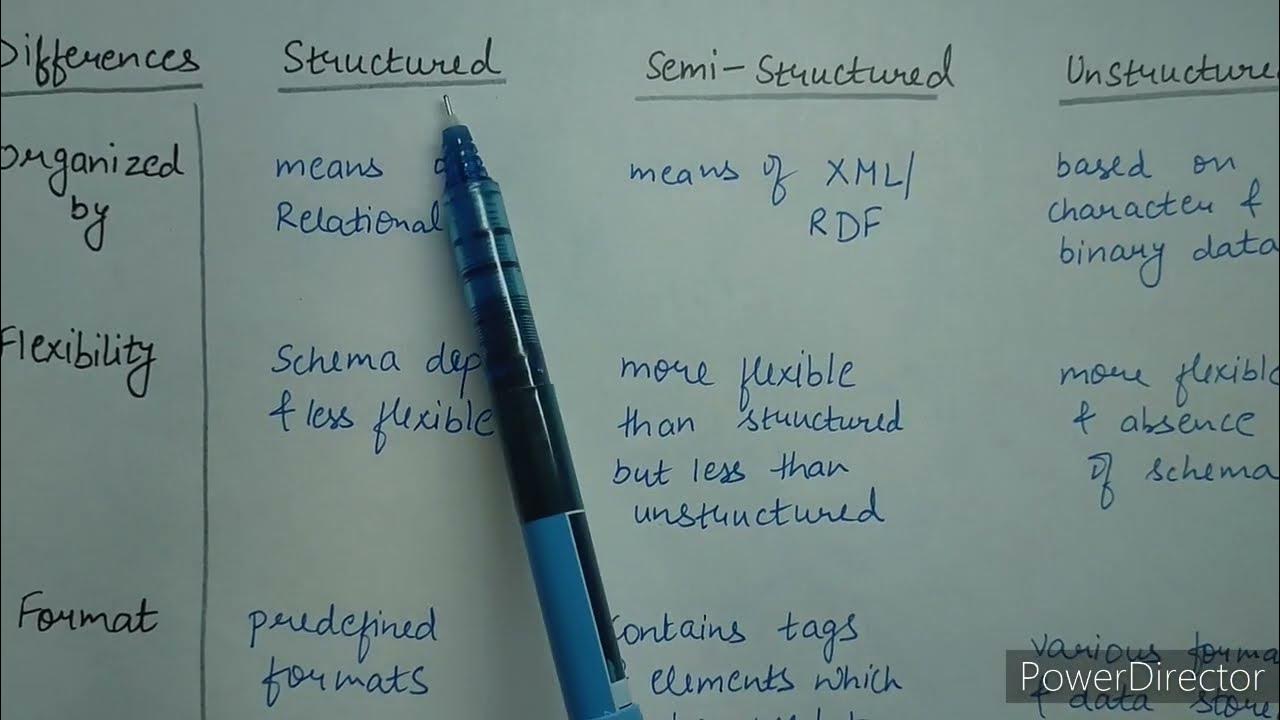 Differences Structured Semi-Structured Unstructure
Organized means means of XML/ based on
by Relational RDF character &
binary data
Flexibility Schema dep more flexible more flexible
& less flexible than structured & absence
but less than of schema
unstructured
Format predefined contains tags various forma
formats elements which & data store
PowerDirector